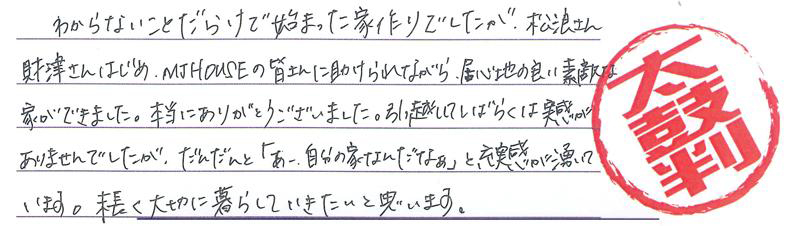 わからないことだらけで始まった家作りでしたが、松浪さん
財津さんはじめ、MJHOUSEの皆さんに助けられながら、居心地の良い素敵な
家ができました。本当にありがとうございました。引越ししてしばらくは実感が
ありませんでしたが、だんだんと「あー、自分の家なんだなぁ」と充実感が湧いて
います。末長く大切に暮らしていきたいと思います。
太鼓判